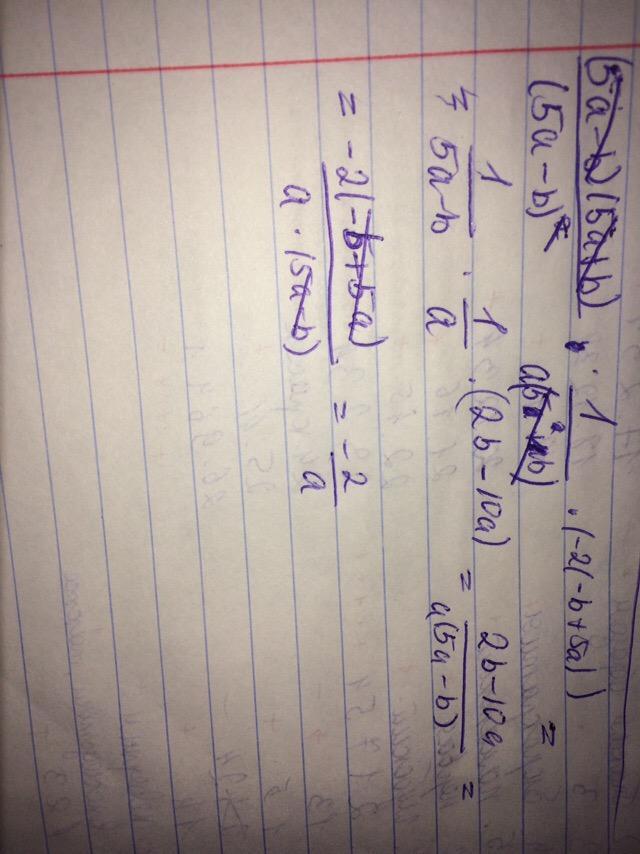 (5a-b)(5a+b) / (5a-b)² · 1 / a(5a+b) · (-2(-b+5a)) =
= 1 / 5a-b · 1 / a · (2b-10a) = 2b-10a / a(5a-b) =
= -2(-b+5a) / a·(5a-b) = -2 / a